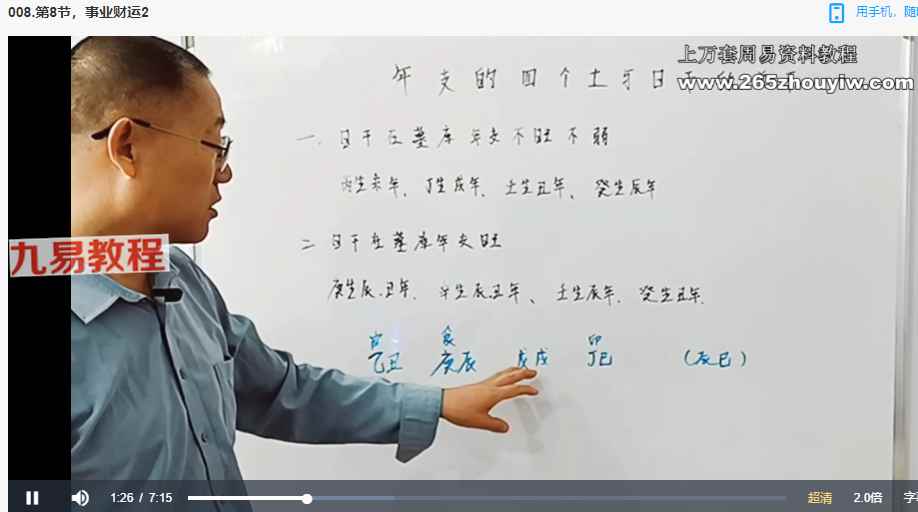 008.第8节，事业财运2
用手机，随
上万套周易资料教程
www.265zhouyiw.com
年支的四个土与日干的
一、日干在墓库年支不旺不弱
丙生未年、丁生戌年、壬生丑年、癸生辰年
二 日干在墓库年支旺
庚生辰.丑年、辛生辰丑年、壬生辰年、癸生丑年.
官 食 印
乙丑 庚辰 戊戌 丁巳 (辰巳)
九易教程
1:26 / 7:15
超清
2.0倍
字